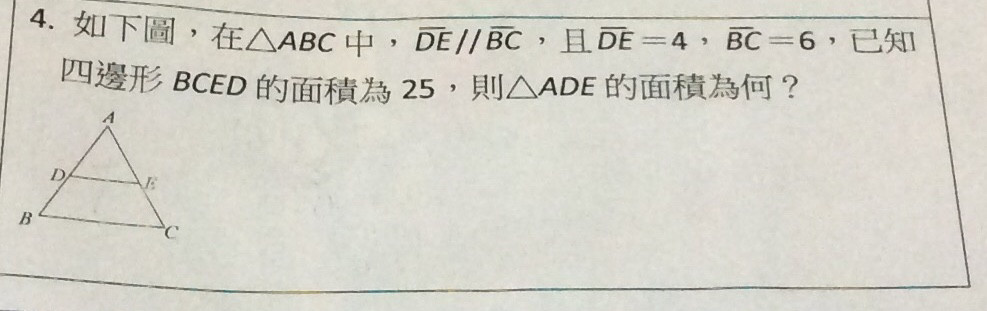 4. 如下圖，在△ABC 中，DE//BC，且DE=4，BC=6，已知
四邊形 BCED 的面積為 25，則△ADE 的面積為何？
A
D
E
B
C